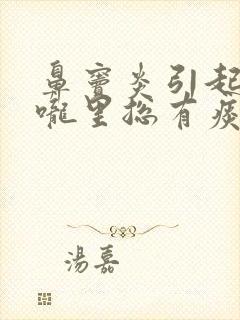 鼻窦炎引起
咙里总有痰
湯嘉